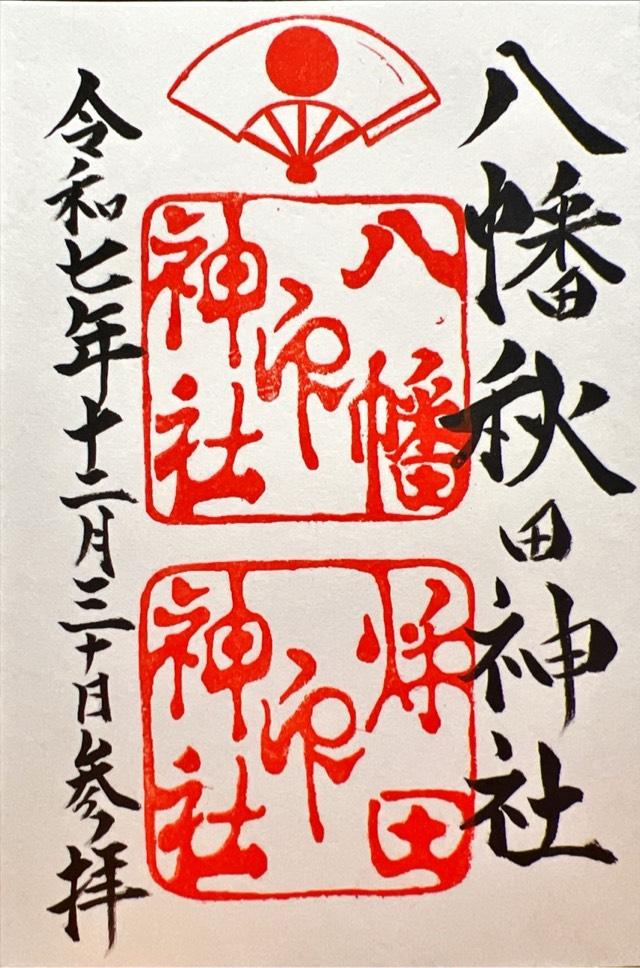 八幡秋田神社
八幡
印
神社
秋田
印
神社
令和七年十二月三十日参拝